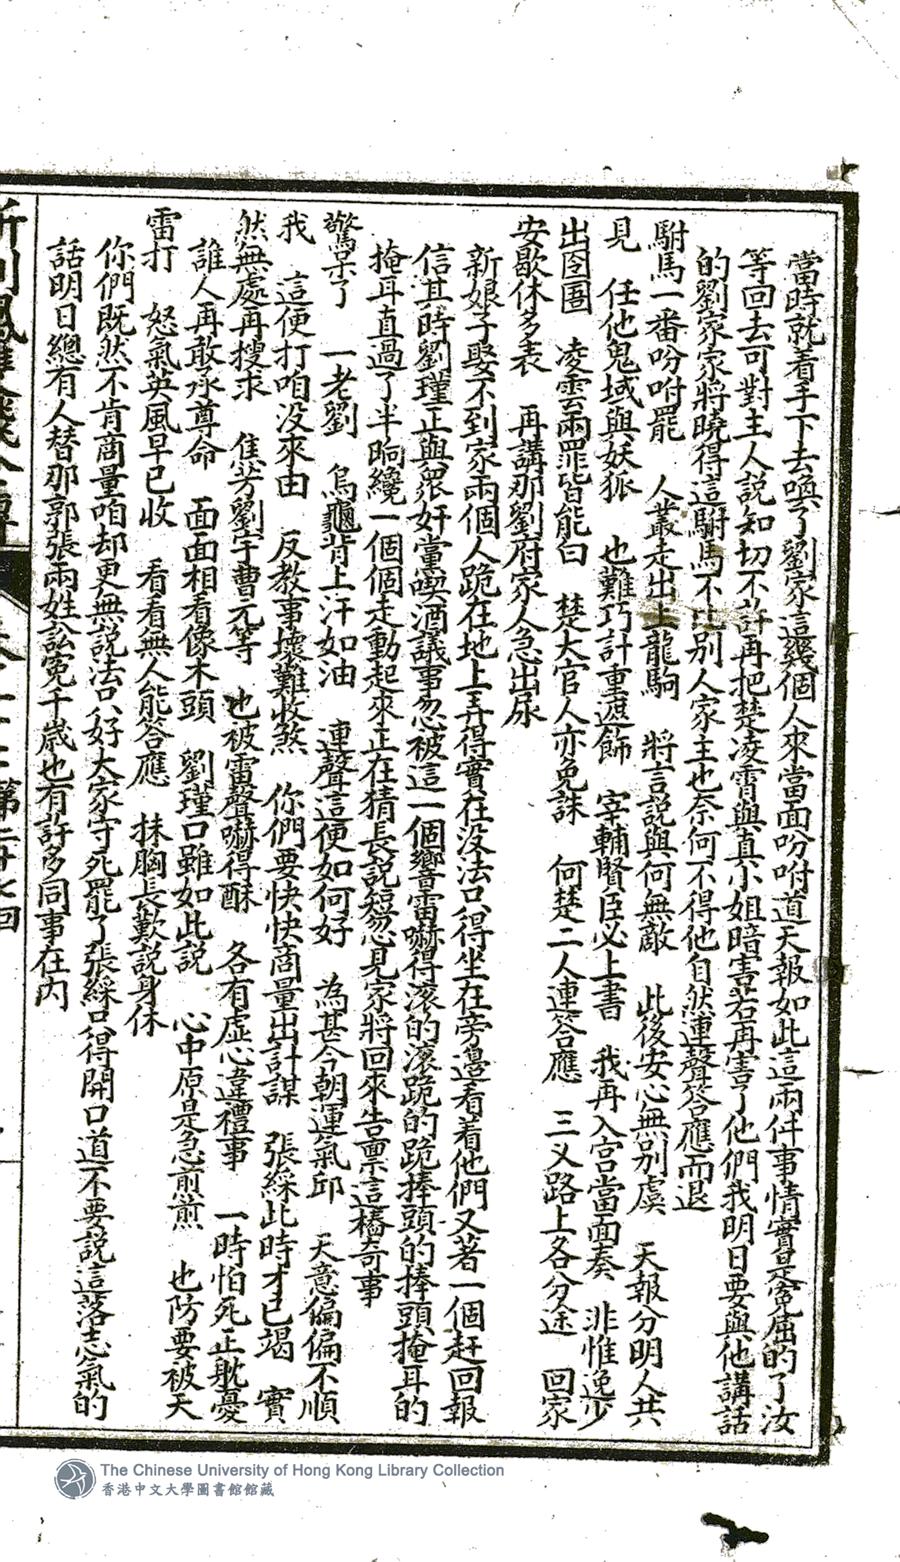 當時就着手下去喚了劉家這幾個人來當面吩咐道天報如此這兩件事情實是冤屈的了汝
等回去可對主人説知切不許再把楚凌霄與真小姐暗害若再害了他們我明日要與他講話
的劉家家將曉得這駙馬不比別人家主也奈何不得他自然連聲答應而退
駙馬一番吩咐罷　人叢走出土龍駒　將言説與何無敵　此後安心無別虞　天報分明人共
見　任他鬼域與妖狐　也難巧計重遮飾　宰輔賢臣必上書　我再入宮當面奏　非惟逸少
出囹圄　凌雲兩罪皆能白　楚大官人亦免誅　何楚二人連答應　三义路上各分途　回家
安歇休多表　再講那劉府家人急出尿
新娘子娶不到家兩個人跪在地上弄得實在没法只得坐在旁邊看着他們又著一個赶回報
信其時劉瑾正與衆奸黨喫酒議事忽被這一個響雷嚇得滾的滾跪的跪捧頭的捧頭掩耳的
掩耳直過了半晌纔一個個走動起來正在猜長説短忽見家將回來告禀這樁奇事
驚呆了　一老劉　烏龜背上汗如油　連聲這便如何好　為甚今朝運氣邱　天意偏偏不順
我　這便打咱没來由　反教事壞難收煞　你們要快快商量出計謀　張綵此時才已竭　實
然無處再搜求　焦芳劉宇曹元等　也被雷聲嚇得酥　各有虛心違禮事　一時怕死正躭憂
誰人再敢承尊命　面面相看像木頭　劉瑾口雖如此説　心中原是急煎煎　也防要被天
雷打　怒氣英風早已收　看看無人能答應　抹胸長歎説身休
你們既然不肯商量咱却更無説法只好大家守死罷了張綵只得開口道不要説這落志氣的
話明日總有人替那郭張兩姓訟冤千歲也有許多同事在内
新刋鳳雙飛全傳　卷二十二　第二十七回
The Chinese University of Hong Kong Library Collection
香港中文大學圖書館館藏